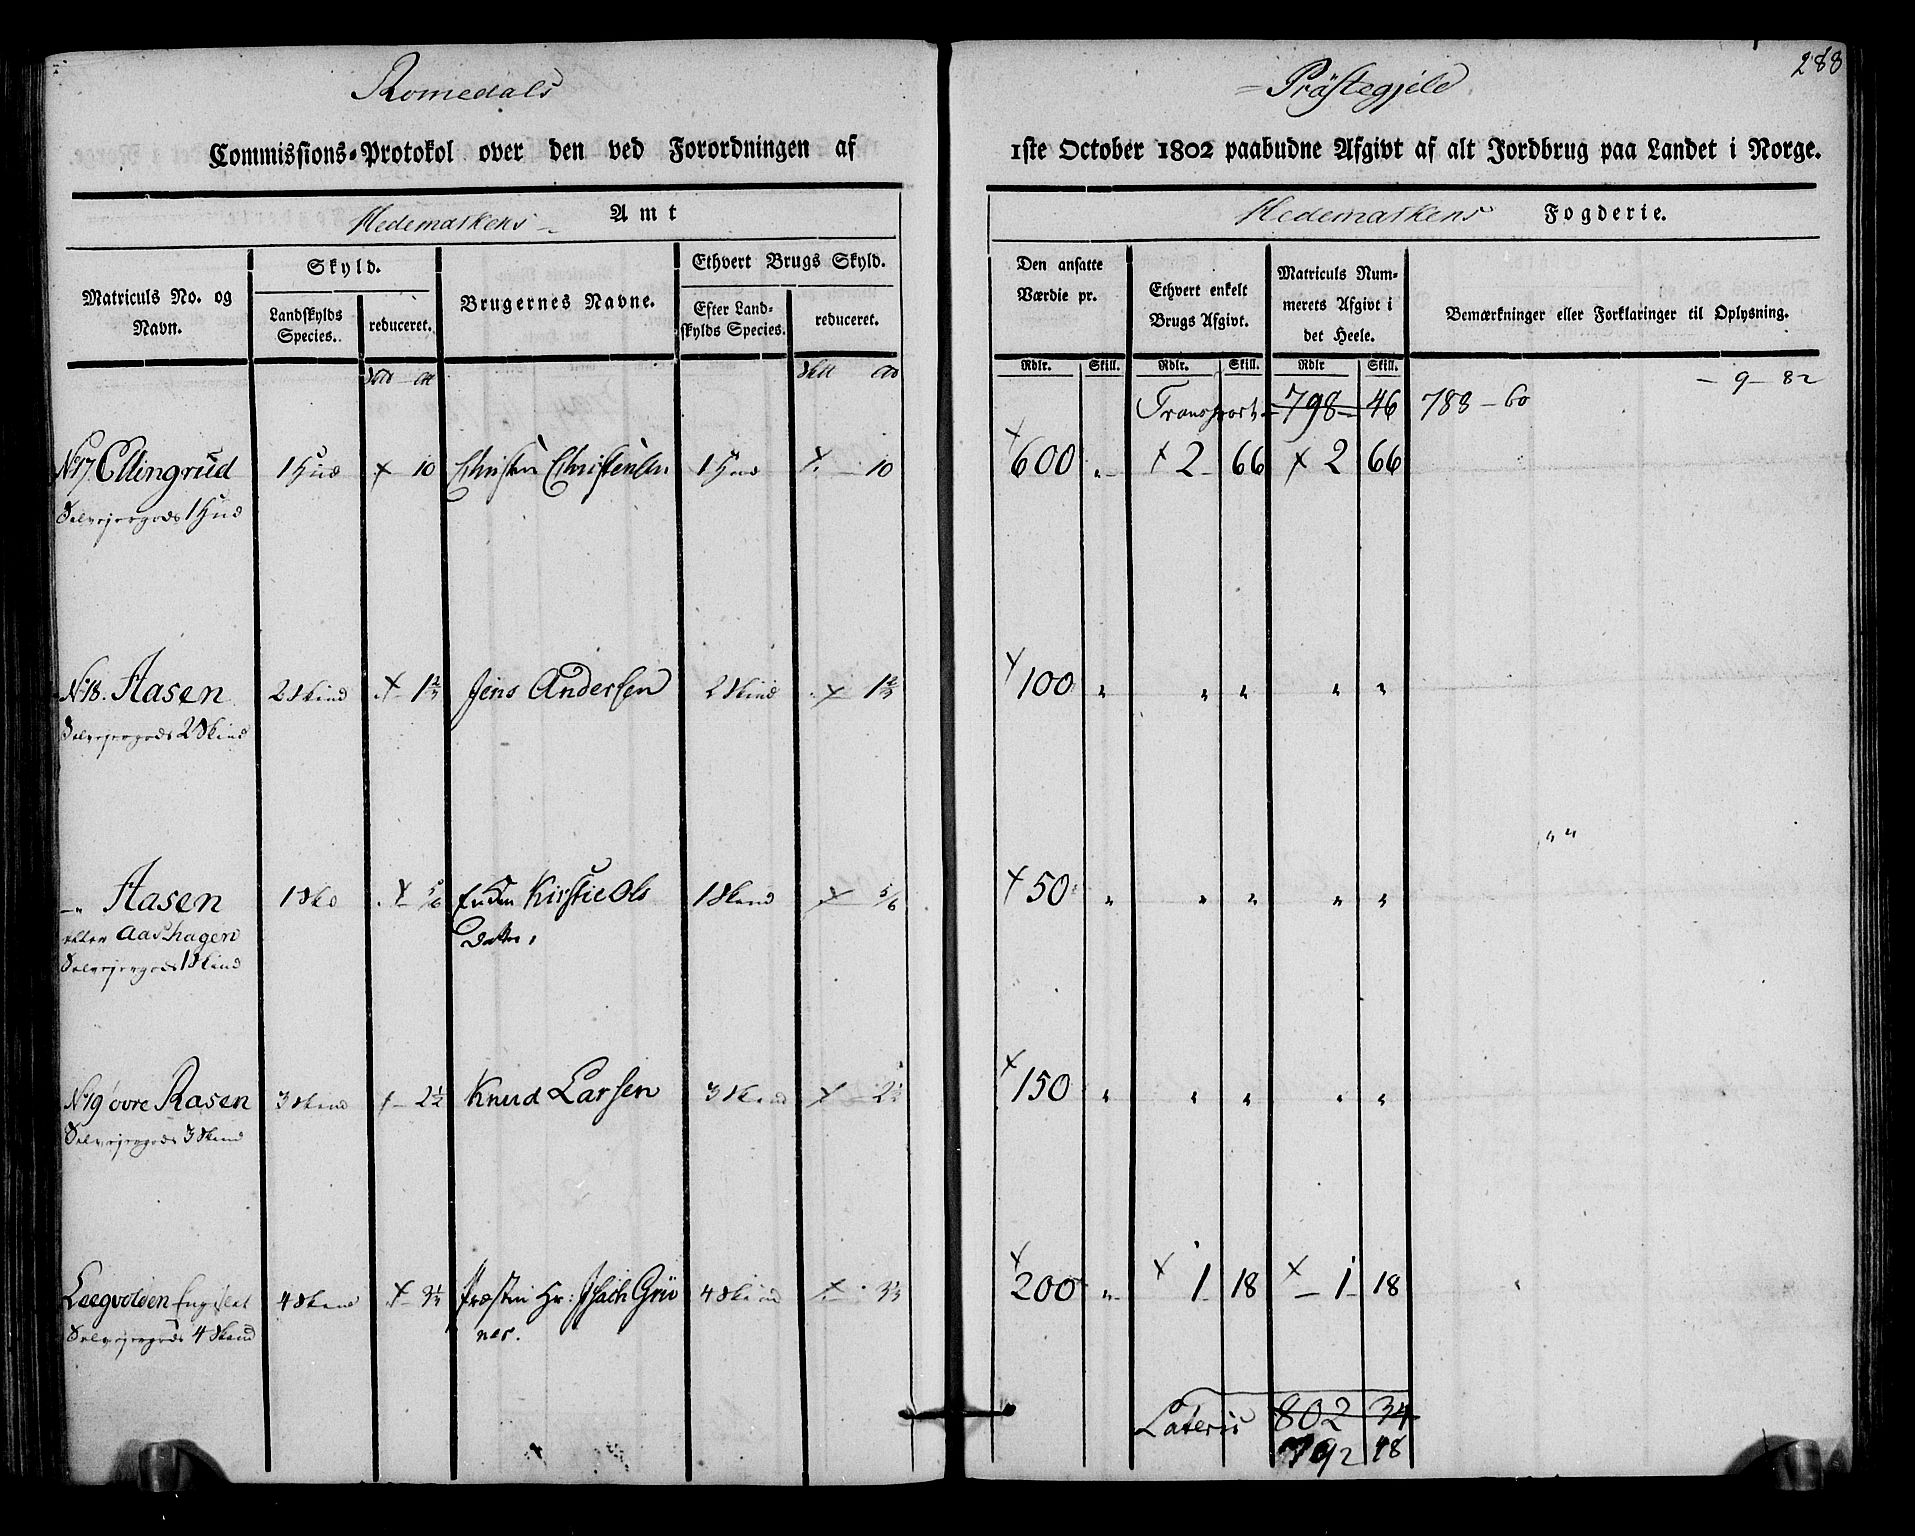 288
Romedals Præstegield
Commissions-Protokol over den ved Forordningen af 1ste October 1802 paabudne Afgivt af alt Jordbrug paa Landet i Norge.
Hedemarkens Amt Hedemarkens Fogderie.
Matriculs No. og Navn. Skyld. Brugernes Navne. Ethvert Brugs Skyld. Den ansatte Værdie pr. Ethvert enkelt Brugs Afgivt. Matriculs Nummerets Afgivt i det Heele. Bemærkninger eller Forklaringer til Oplysning.
Landskylds Species. reduceret. Efter Landskylds Species. reduceret.
Rdlr. Skill. Rdlr. Skill. Rdlr Skill.
Transport 798 46 788 - 60 - 9 - 82
No 17 Ellingrud 1 Hud x 10 Christen Christensen 1 Hud x. 10 x 600 „ x 2 66 x 2 66
Selvejergods 1 Hud
No 18. Aasen 2 Skind x 1 2/3 Jens Andersen 2 Skind x 1 2/3 x 100 „ „ „ „ „
Selvejergods 2 Skind
„ „
„ Aasen 1 Sk x 5/6 Enken Kirstie Ols 1 Skind x 5/6 x 50 „ „ „ „ „
eller Aashagen Datter,
Selvejergods 1 Skind
No 19 øvre Raasen 3 Skind x 2 1/2 Knud Larsen 3 Skind x 2 1/2 x 150 „ „ „ „ „
Selvejergods 3 Skind
Leegvolden Engeslet 4 Skind x 3 1/3 Præsten Hr: Isach Grü 4 Skind x 3 1/3 x 200 „ x 1 18 x 1 18
Selvejergods 4 Skind ner.
Lateris 802 34
792 48